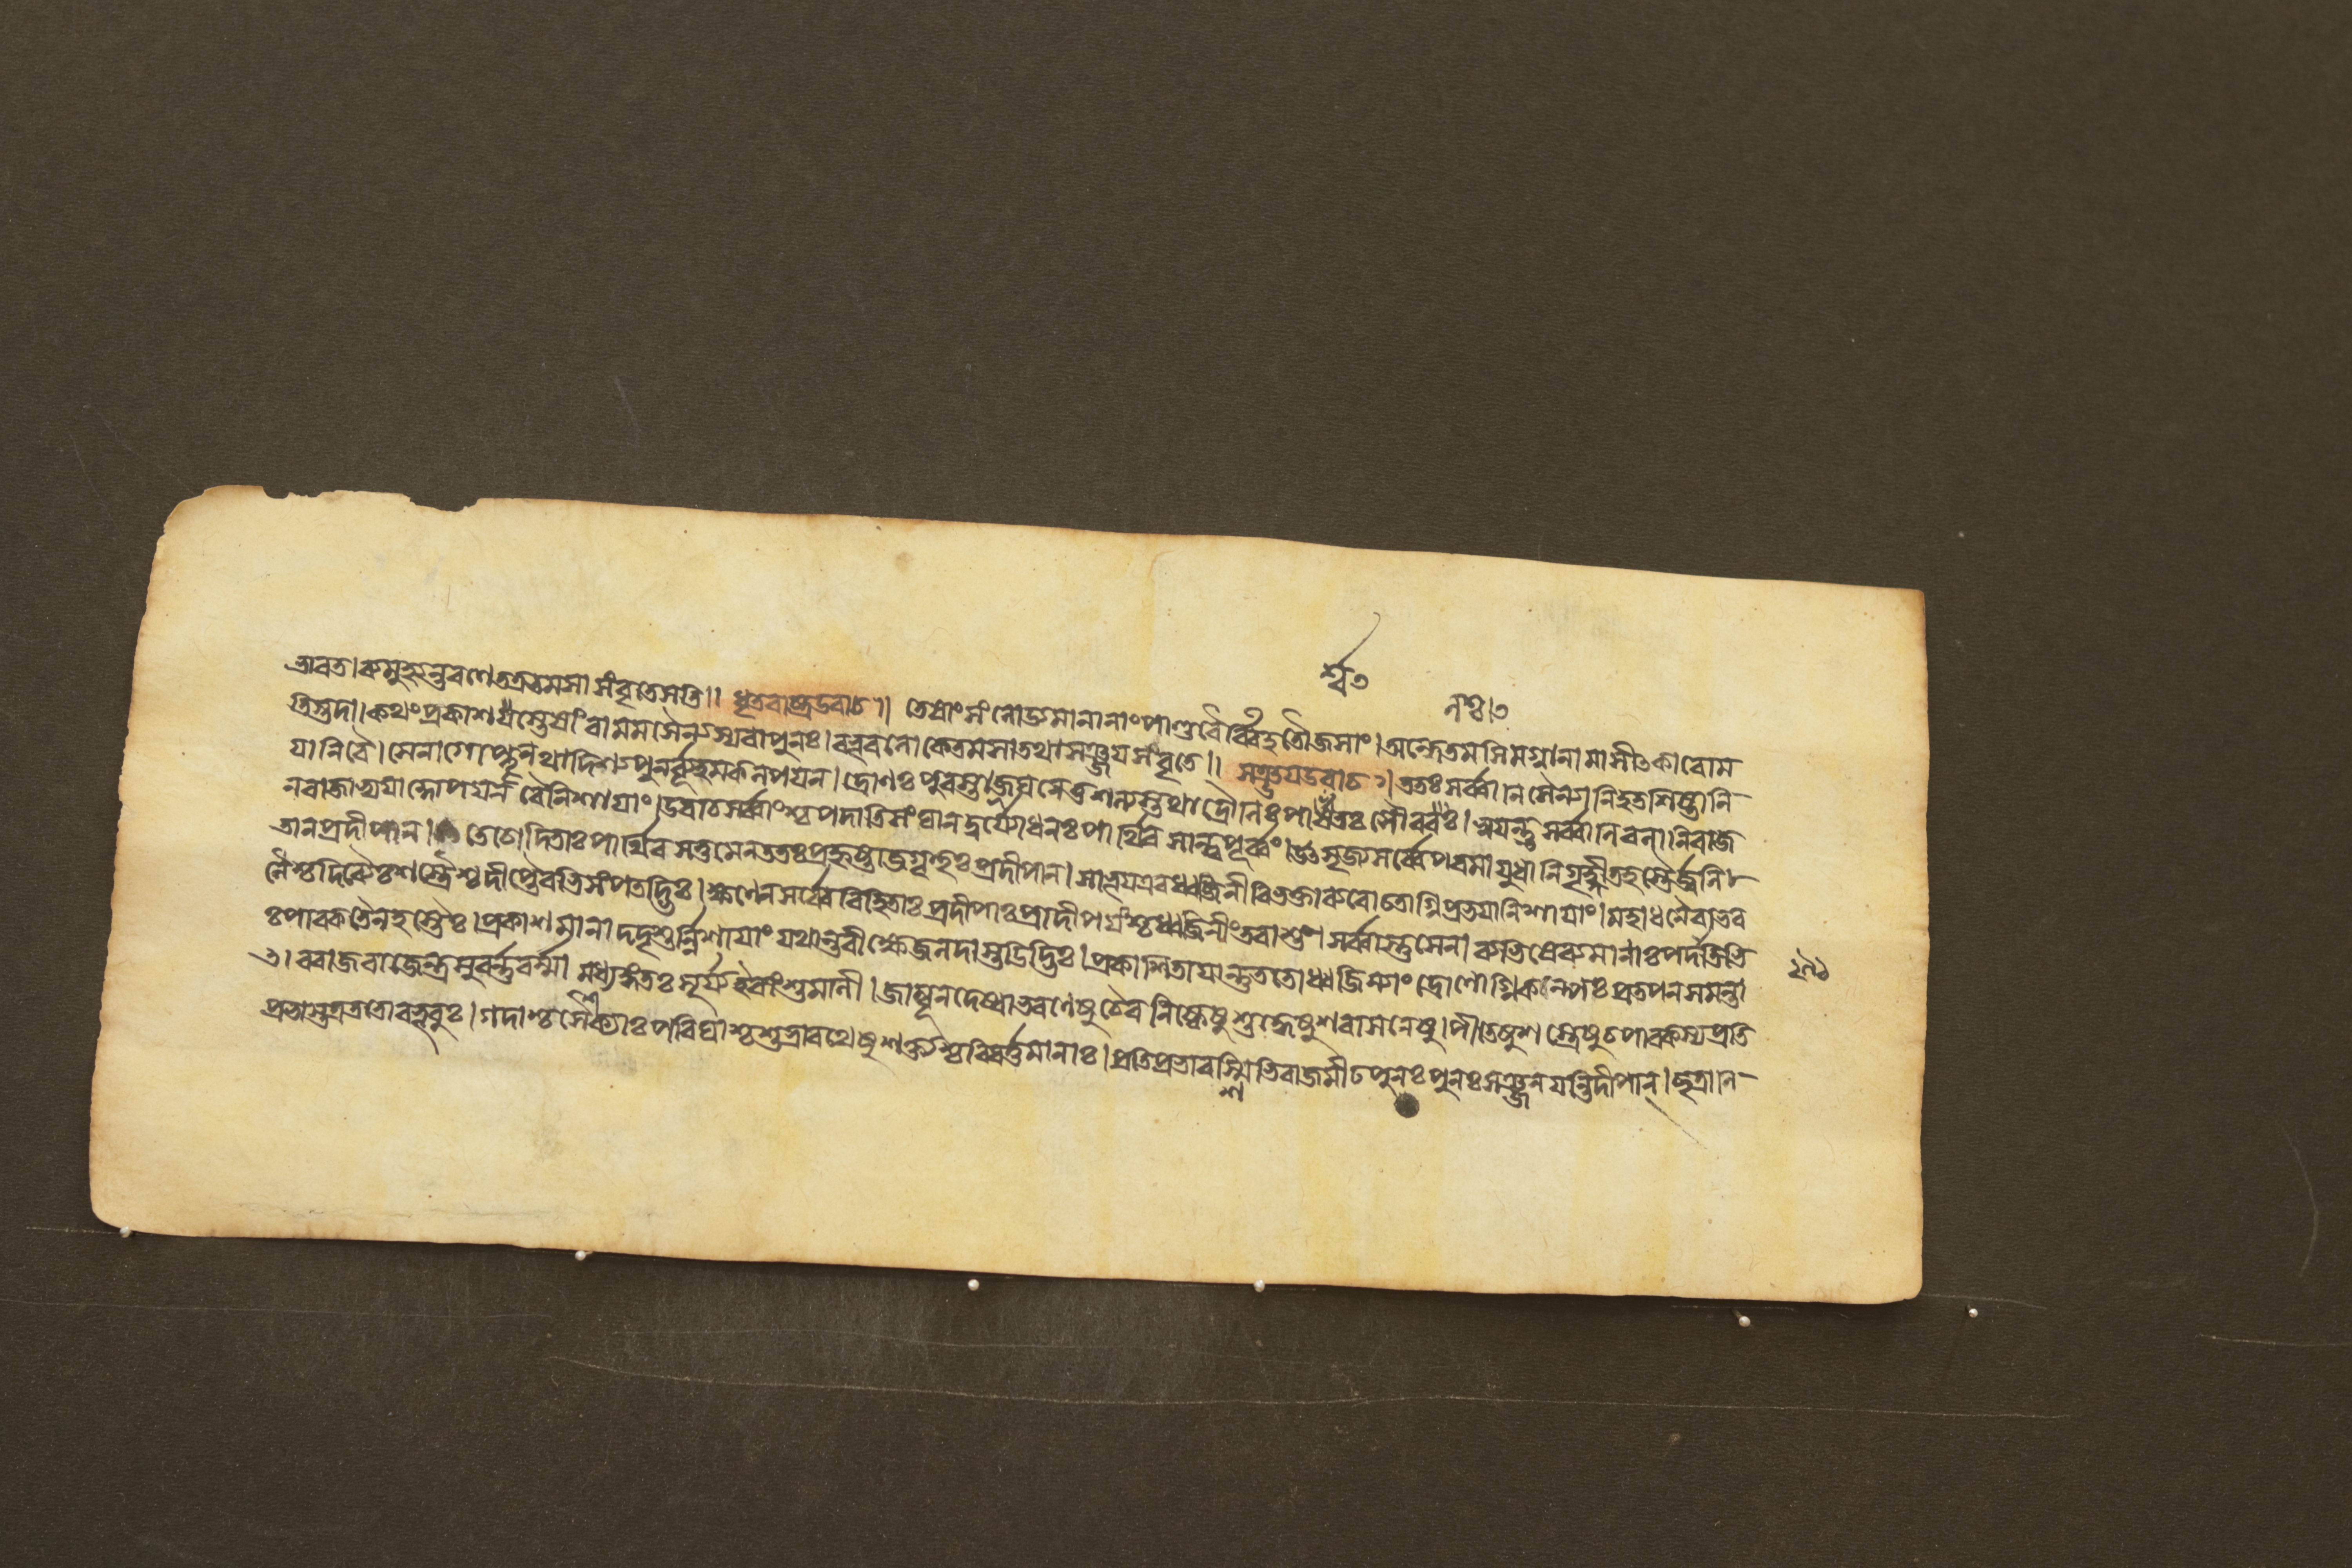 ভারত। ব্যমুহ্যন্তরণে তত্রতমসা সংবৃতেসতি॥ ধৃতরাষ্ট্রউবাচ॥ তেষাং সংলোড্যমানানাং পাণ্ডবৈর্ব্বিহতৌজসাং। অন্ধেতমসিমগ্নানামাসীৎকাবোম
তিস্তদা। কথংপ্রকাশ যস্তেষাং বামমসৈন্যস্যবাপুনঃ। বভূবলোকেতমসাতথাসঞ্জয়সংবৃতে॥ সঞ্জয়উবাচ॥ ততঃসর্ব্বাণিসৈন্যানিহতশিষ্টানি
যানিবৈ। সেনাগোপ্তৄনথাদিশ্যপুনর্ব্যূহমকল্পয়ন। দ্রোণঃপুরস্তাজ্জঘনেতুশল্যস্তথাদ্রৌণিঃপার্শ্বতঃ সৌবলঃ। স্বয়ন্তুসর্ব্বাণিবলানিরাজ
নরাজাভ্যযাদ্গোপয়ন্ বৈনিশায়াং। উবাচসর্ব্বাংশ্চপদাতিসংঘানদুর্যোধনঃপার্থিবসান্ত্বপূর্ব্বং। উৎসৃজ্যসর্ব্বেপরমায়ুধানিগৃহ্ণীতহস্তৈর্জ্বলি
তানপ্রদীপান। তেচোদিতাঃপার্থিবসত্তমেনততঃপ্রহৃষ্টাজগৃহুঃপ্রদীপান। সাভূয়এবধ্বজিনীবিভক্তাব্যরোচতাগ্নিপ্রভয়ানিশায়াং। মহাধনৈরাভর
ণৈশ্চদিব্যৈঃশস্ত্রৈশ্চদীপ্তৈরভিসংপতদ্ভিঃ। ক্ষণেনসর্ব্বেবিহিতাঃপ্রদীপাঃপ্রাদীপয়ংশ্চধ্বজিনীংতবাশু। সর্ব্বাস্তুসেনাব্যতিষেব্যমানাঃপদাতিভি
ঃপাবকতৈলহস্তৈঃ। প্রকাশমানাদদৃশুর্ন্নিশায়াংযথান্তরীক্ষেজলদাস্তডিদ্ভিঃ। প্রকাশিতায়ান্তুততোধ্বজিন্যাংদ্রোণোগ্নিকল্পঃপ্রতপনসমন্তা
ৎ। ররাজরাজেন্দ্রসুবর্ণবর্ম্মা মধ্যংগতঃসূর্য্যইবাংশুমালী। জাম্বূনদেষ্বাভরণেষুচৈবনিষ্কেষুশুদ্ধেষুশরাসনেষু। পীতেষুশস্ত্রেষুচপাবকস্যপ্রতি
প্রভাস্তত্রততোবভূবুঃ। গদাশ্চশৈক্যাঃপরিঘাশ্চশুভ্রারথেষুশক্ত্যশ্চবিবর্ত্তমানাঃ। প্রতিপ্রভারশ্মিভিরাজমীঢপুনঃপুনঃসঞ্জনয়ন্তিদীপান্। ছত্রাণি